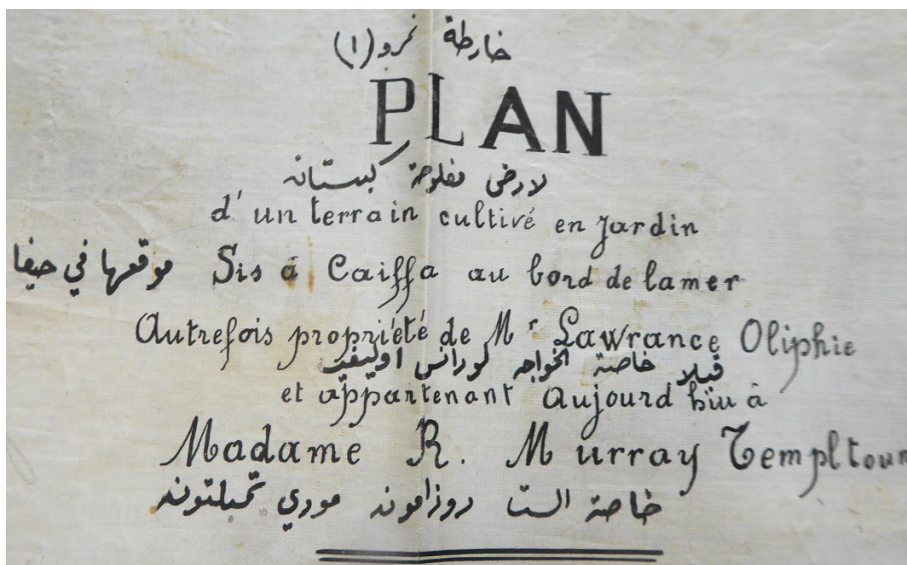 خارطة نمرو (١)
PLAN
لارض مفلوحة كبستانه
d'un terrain cultivé en Jardin
موقعها في حيفا Sis à Caiffa au bord de lamer
Autrefois propriété de Mr Lawrance Oliphie
قبلا خاصة الخواجه لورانس اوليفت
et appartenant aujourd'hiu à
Madame R. Murray Templtoun
خاصة الست روزامونه موري تمبلتونه